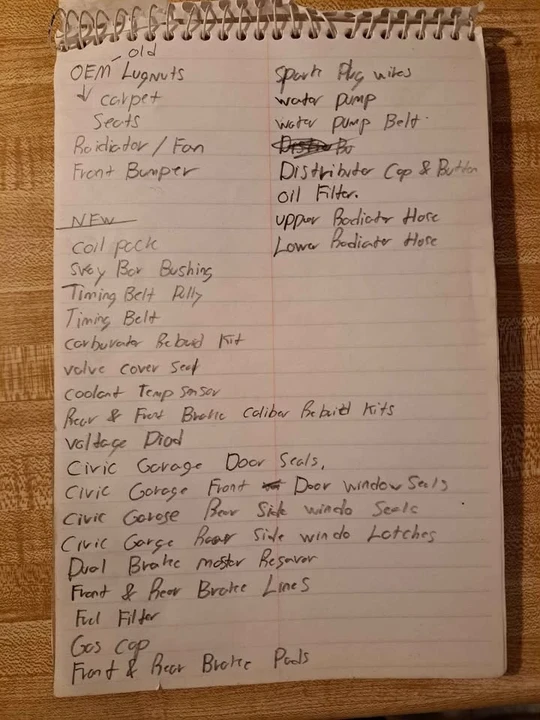 old
OEM Lugnuts
↓ carpet
Seats
Raidiator / Fan
Front Bumper
NEW
coil pack
Svay Bar Bushing
Timing Belt Pully
Timing Belt
carburator Rebuid Kit
valve cover Seal
coolant Temp Sensor
Rear & Front Brake Caliber Rebuild Kits
voltage Diod
Civic Garage Door Seals,
Civic Garage Front Door window Seals
Civic Garage Rear Side windo Seals
Civic Garge Rear Side windo Latches
Dual Brake master Resavor
Front & Rear Brake Lines
Fuel Filter
Gas cap
Front & Rear Brake Pads
Spark Plug wires
water pump
water pump Belt
Distributer Cap & Button
oil Filter.
upper Radiator Hose
Lower Radiator Hose